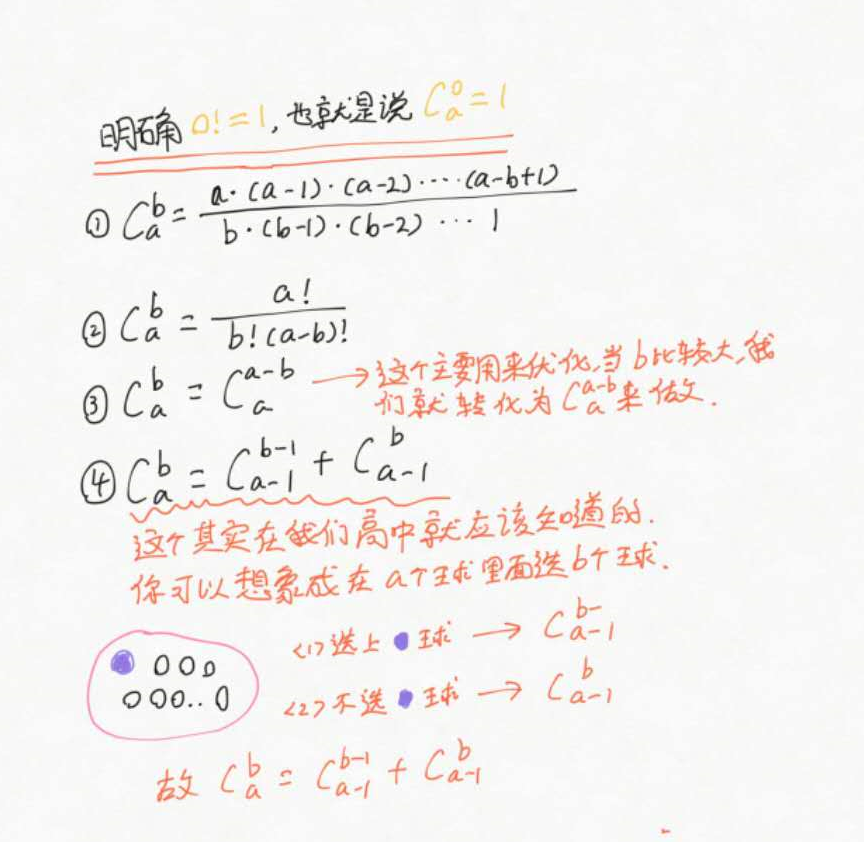 明确 0!=1, 也就是说 C_a^0=1
① C_a^b = a·(a-1)·(a-2)····(a-b+1) / b·(b-1)·(b-2) ··· 1
② C_a^b = a! / b!(a-b)!
③ C_a^b = C_a^{a-b} → 这个主要用来优化,当b比较大,我
们就转化为 C_a^{a-b} 来做.
④ C_a^b = C_{a-1}^{b-1} + C_{a-1}^b
这个其实在我们高中就应该知道的.
你可以想象成在a个球里面选b个球.
<1>选上 球 → C_{a-1}^{b-}
<2>不选 球 → C_{a-1}^b
故 C_a^b = C_{a-1}^{b-1} + C_{a-1}^b